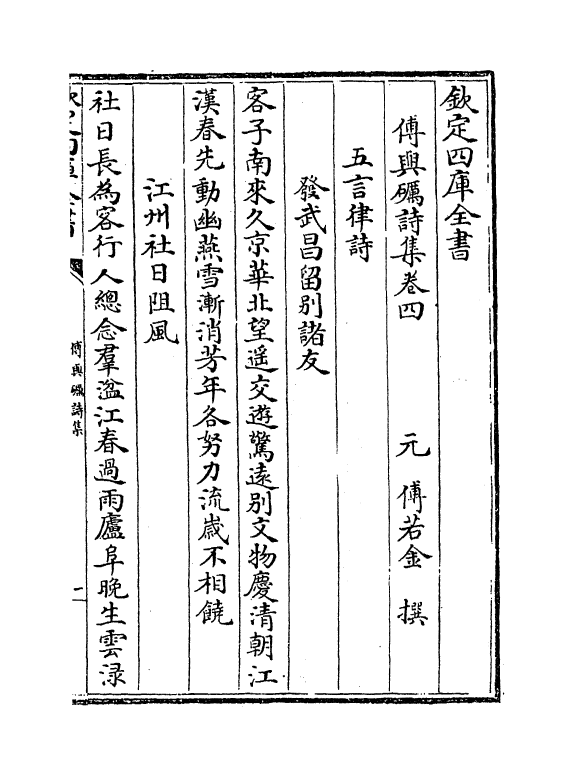 欽定四庫全書
傅與礪詩集卷四　元　傅若金　撰
五言律詩
發武昌留别諸友
客子南來久京華北望遥交遊驚遠别文物慶清朝江
漢春先動幽燕雪漸消芳年各努力流歲不相饒
江州社日阻風
社日長為客行人總念羣湓江春過雨廬阜晚生雲渌
傅與礪詩集
一